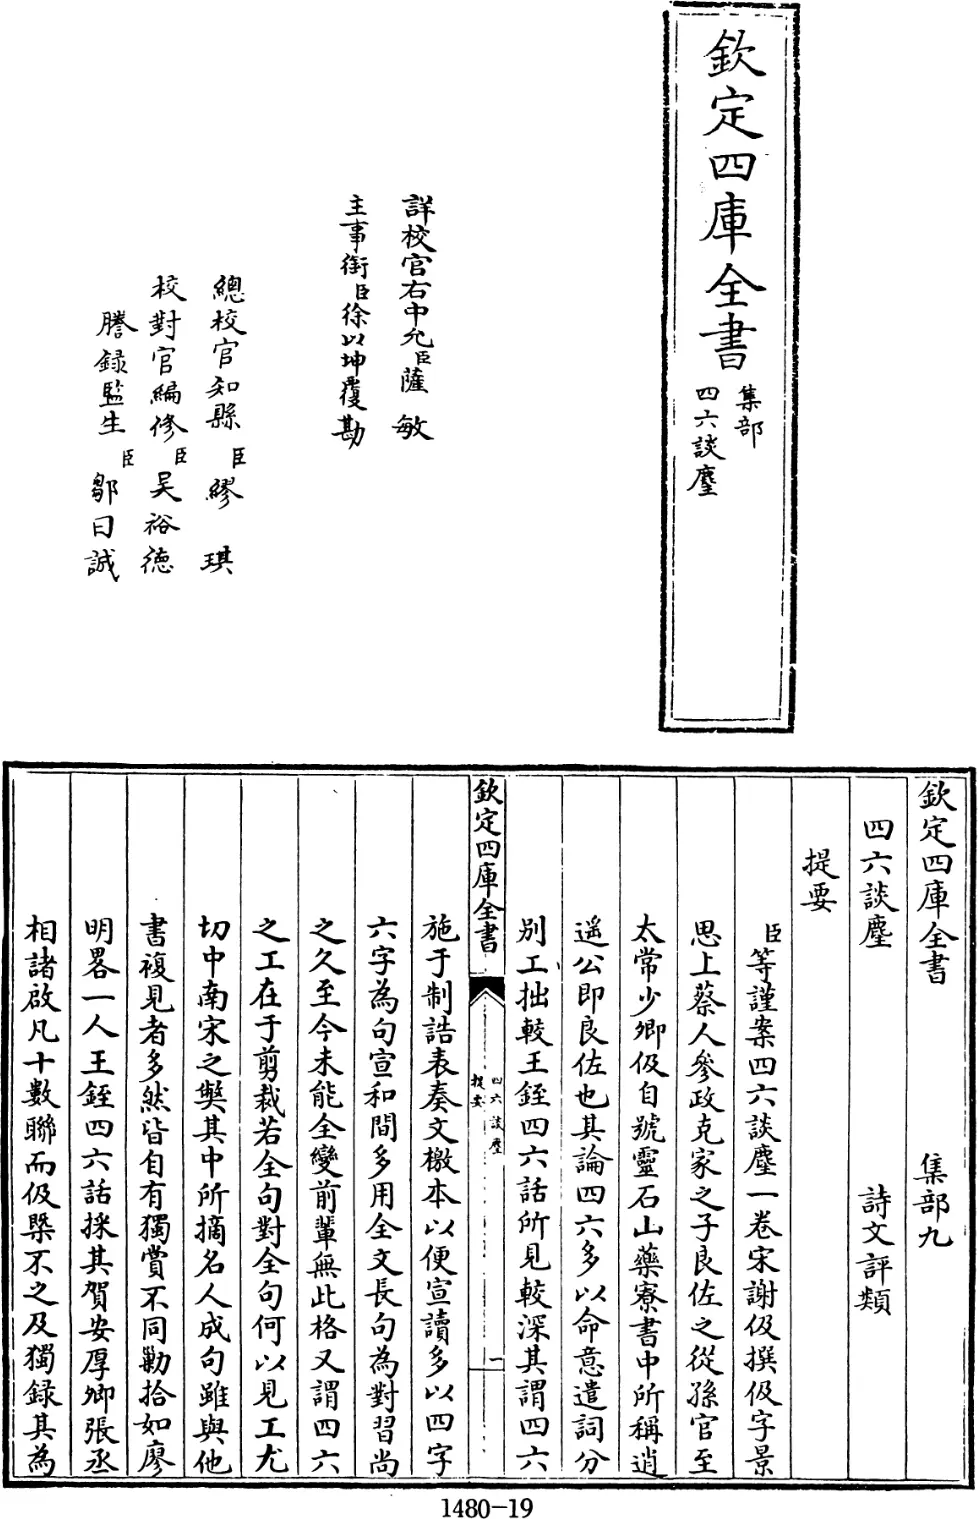 欽定四庫全書
集部
四六談麈
詳校官右中允臣薩敏
主事銜臣徐以坤覆勘
總校官知縣臣繆琪
校對官編修臣吳裕德
謄錄監生臣鄒日誠
欽定四庫全書 集部九
四六談麈 詩文評類
提要
臣等謹案四六談麈一卷宋謝伋撰伋字景
思上蔡人參政克家之子良佐之從孫官至
太常少卿伋自號靈石山藥寮書中所稱逍
遥公即良佐也其論四六多以命意遣詞分
別工拙較王銍四六話所見較深其謂四六
欽定四庫全書
四六談麈
提要
一
施于制誥表奏文檄本以便宣讀多以四字
六字為句宣和間多用全文長句為對習尚
之久至今未能全變前輩無此格又謂四六
之工在于剪裁若全句對全句何以見工尤
切中南宋之弊其中所摘名人成句雖與他
書複見者多然皆自有獨賞不同勦拾如廖
明畧一人王銍四六話採其賀安厚卿張丞
相諸啟凡十數聯而伋槩不之及獨録其為
1480-19